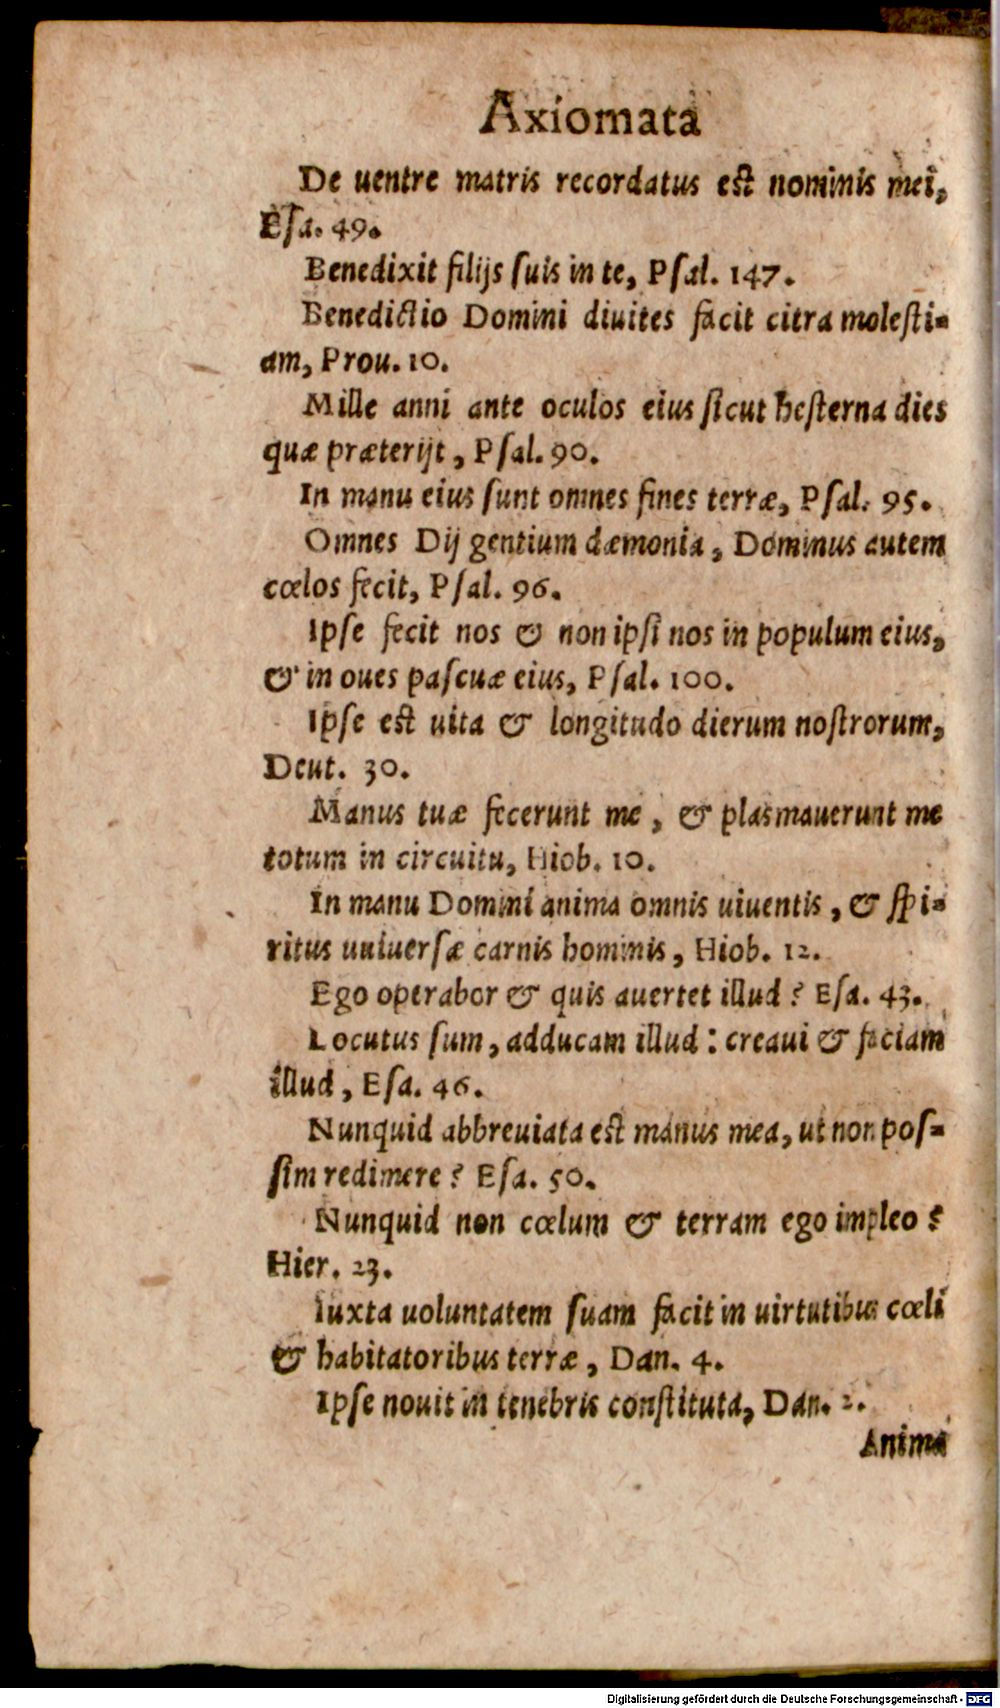 Axiomata
De uentre matris recordatus est nominis mei,
Eſa. 49.
Benedixit filijs ſuis in te, Pſal. 147.
Benedictio Domini diuites facit citra moleſti-
am, Prou. 10.
Mille anni ante oculos eius ſicut heſterna dies
quæ præterijt, Pſal. 90.
In manu eius ſunt omnes fines terræ, Pſal. 95.
Omnes Dij gentium dæmonia, Dominus autem
cœlos fecit, Pſal. 96.
Ipſe fecit nos & non ipſi nos in populum eius,
& in oues paſcuæ eius, Pſal. 100.
Ipſe est uita & longitudo dierum noſtrorum,
Deut. 30.
Manus tuæ fecerunt me, & plasmauerunt me
totum in circuitu, Hiob. 10.
In manu Domini anima omnis uiuentis, & ſpi-
ritus uniuerſæ carnis hominis, Hiob. 12.
Ego operabor & quis auertet illud? Eſa. 43.
Locutus ſum, adducam illud: creaui & faciam
illud, Eſa. 46.
Nunquid abbreuiata est manus mea, ut non poſ-
ſim redimere? Eſa. 50.
Nunquid non cœlum & terram ego impleo?
Hier. 23.
Iuxta uoluntatem ſuam facit in uirtutibus cœli
& habitatoribus terræ, Dan. 4.
Ipſe nouit in tenebris conſtituta, Dan. 2.
Anima
Digitalisierung gefördert durch die Deutsche Forschungsgemeinschaft - DFG